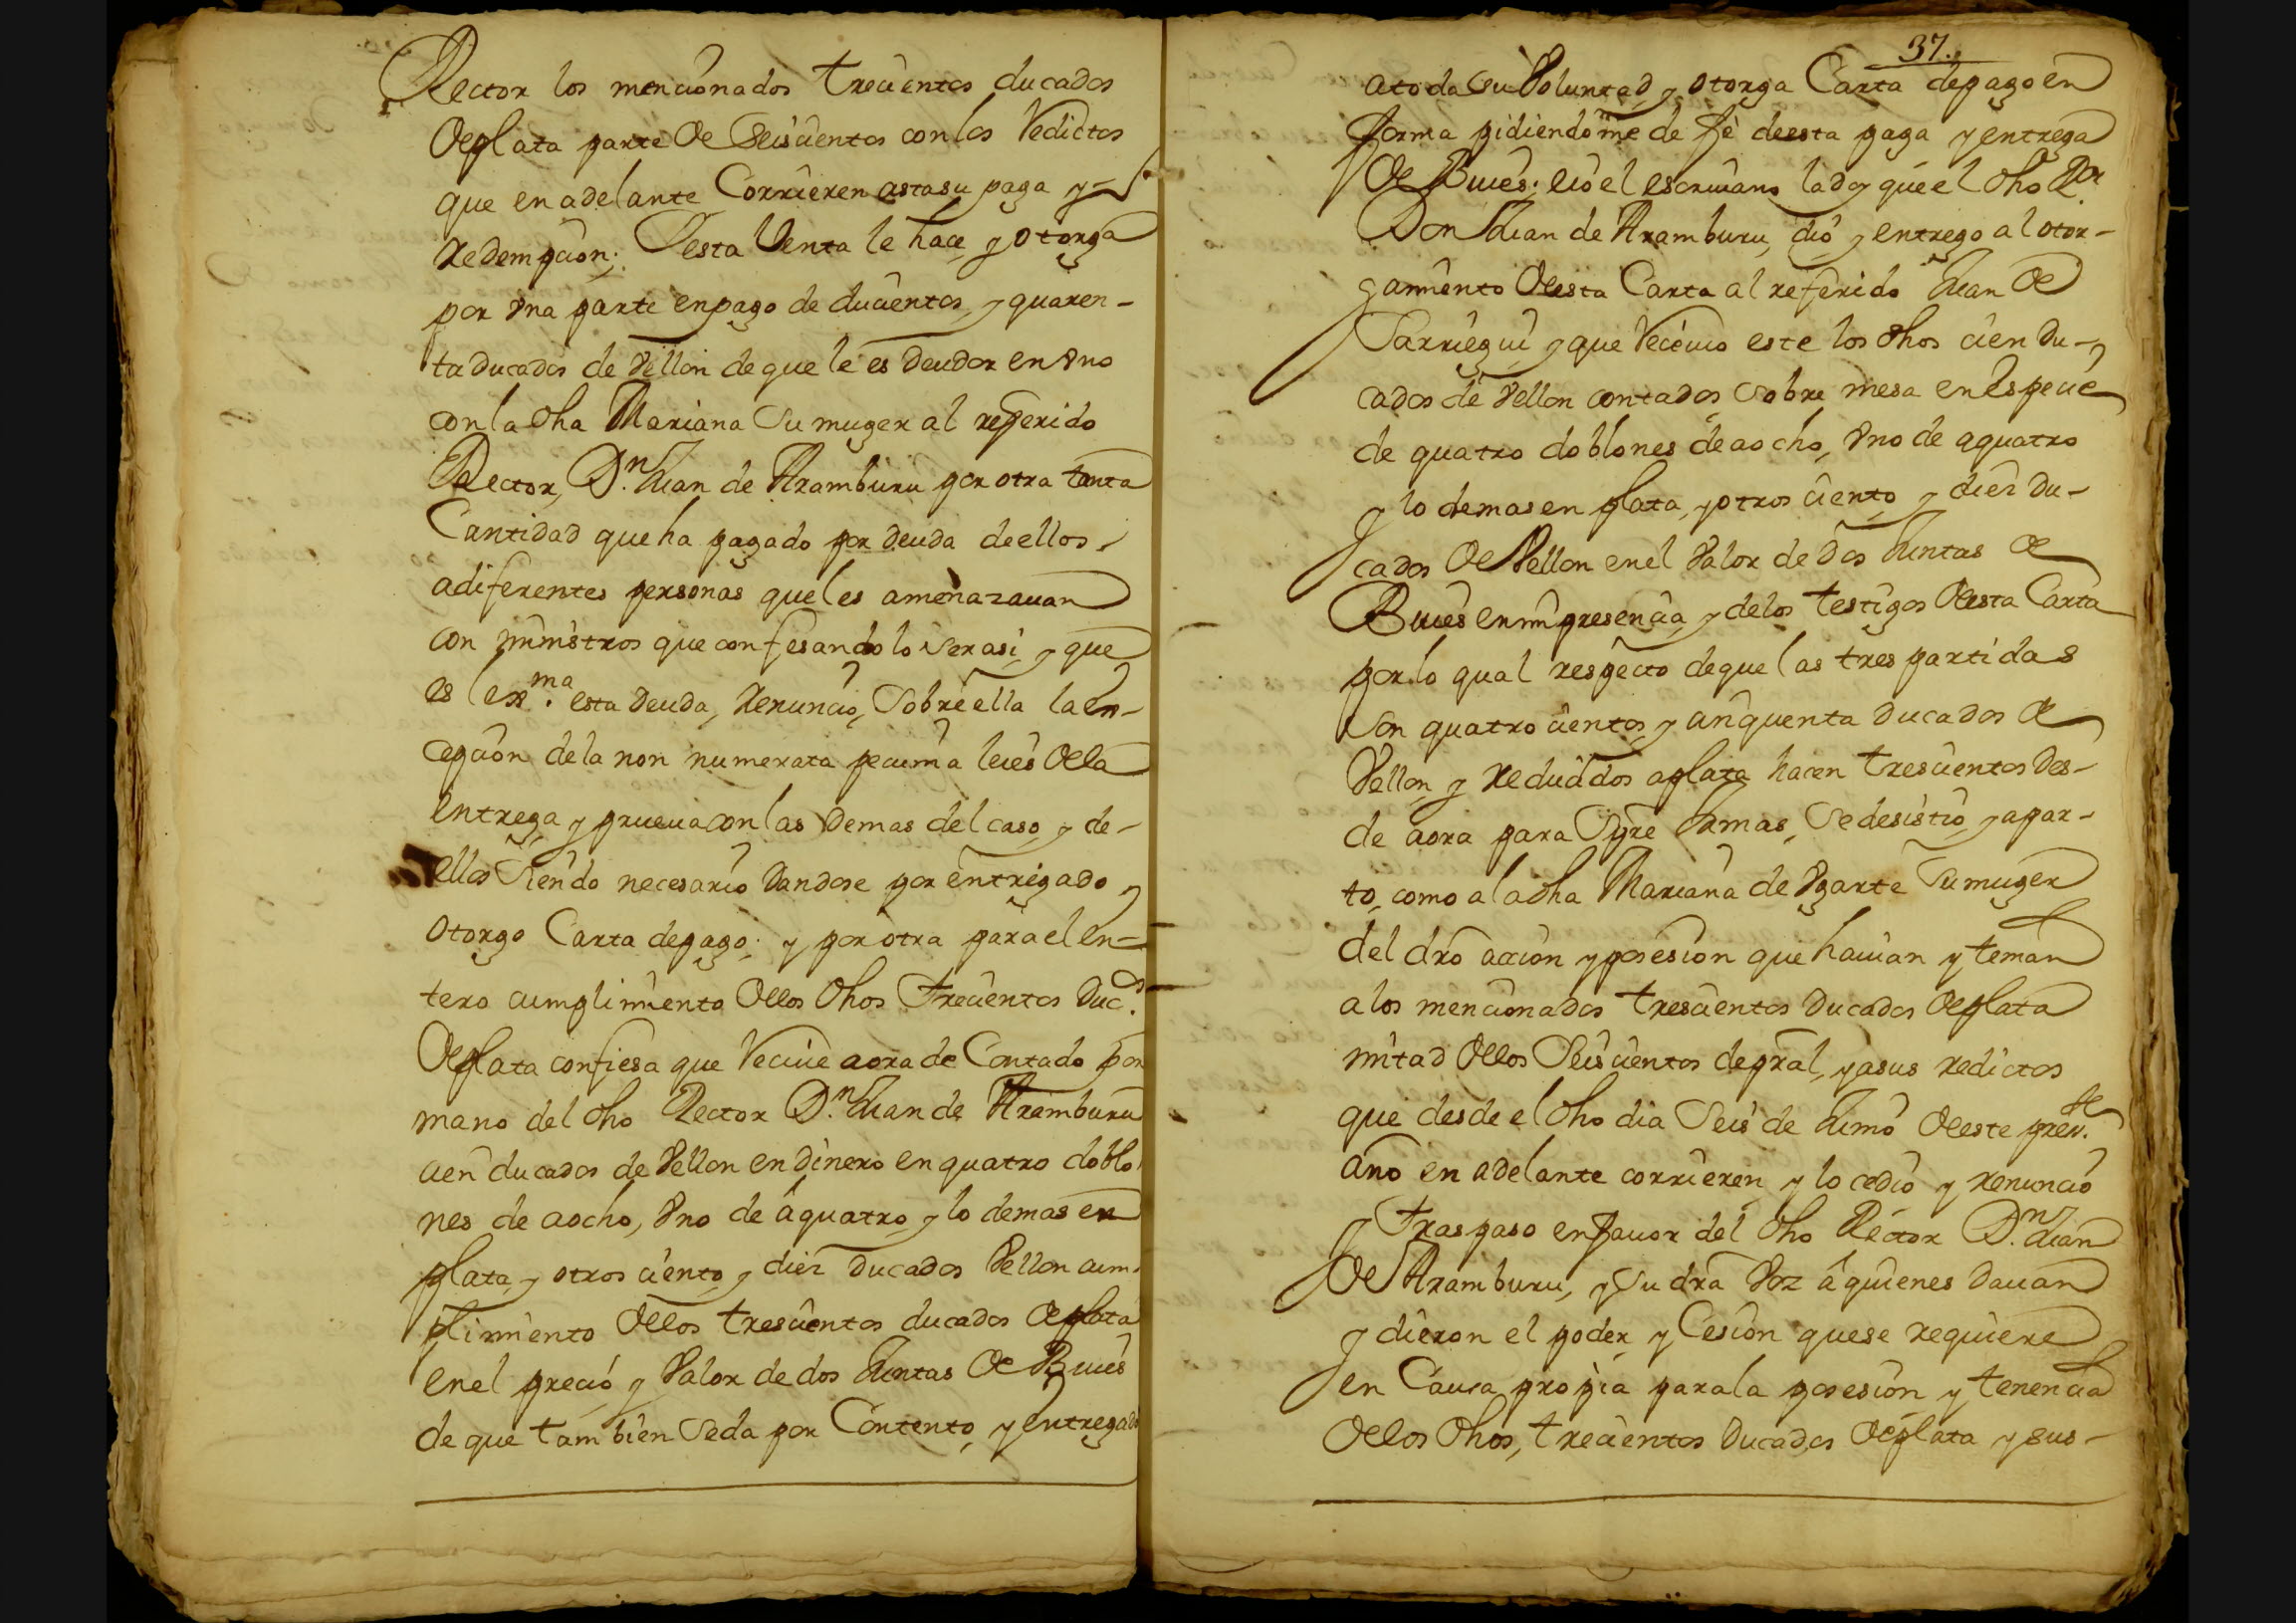 Rector los mencionados Trecientos ducados
de plata parte de Seiscientos con los Redictos
que en adelante Corrieren asta su paga y
redempcion; I esta Venta le hace y otorga
por vna parte en pago de ducientos y quaren-
ta Ducados de Vellon de que le es Deudor en vno
con la dha Mariana Su muger al referido
Rector, Dn. Juan de Aramburu por otra tanta
Cantidad que ha pagado por deuda de ellos
a diferentes personas que les amenazauan
con ministros que confesandolo ser asi y que
es lexma. esta Deuda, Renuncio, Sobre ella la en-
cepcion de la non numerata pecunia leies de la
entrega y prueua con las Demas del caso y de-
ellos Siendo necesario Dandose por entregado
otorgo Carta de pago; y por otra para el en-
tero cumplimiento de los dhos Trecientos Ducs.
de plata confiesa que Reciue aora de Contado por
mano del dho Rector Dn. Juan de Aramburu
cien ducados de Vellon en Dinero en quatro doblo
nes de a ocho, vno de á quatro y lo demas en
plata, y otros ciento y diez Ducados Vellon cum-
plimiento de los trescientos ducados de plata
en el precio y Valor de dos Juntas de Bueis
de que tambien Se da por Contento, y entregado
37.
a toda su Voluntad y otorga Carta de pago en
forma pidiendome de fè de esta paga y entrega
de Bueis; eio el escriuano la doy que el dho Ror.
Don Juan de Aramburu, dió y entrego al otor-
gamiento de esta Carta al referido Juan de
Sarriegui y que Reciuio este los dhos cien Du-
cados de Vellon contados Sobre mesa en Especie
de quatro doblones de a ocho, vno de a quatro
y lo demas en plata, y otros ciento y diez Du-
cados de Vellon en el Valor de Dos Juntas de
Bueis en mi presencia y de los testigos de esta Carta
por lo qual respecto de que las tres partidas
son quatrocientos y cinquenta Ducados de
Vellon y Reducidos a plata hacen Trescientos Des-
de aora para Sipre Jamas, Se desistio y apar-
to, como a la dha Mariana de Vgarte Su muger
del dro accion y posesion que hauian y tenian
a los mencionados trescientos Ducados de plata
mitad de los Seiscientos de pral, y a sus redictos
que desde el dho dia Seis de Junio de este preste.
año en adelante corrieren y lo cedio y renuncio
y Traspaso en fauor del dho Rector Dn. Juan
de Aramburu, y Su dra Voz á quienes Dauan
y dieron el poder y Cesion que se requiere
en Causa propia para la posesion y tenencia
de los dhos, trecientos Ducados de plata y sus-